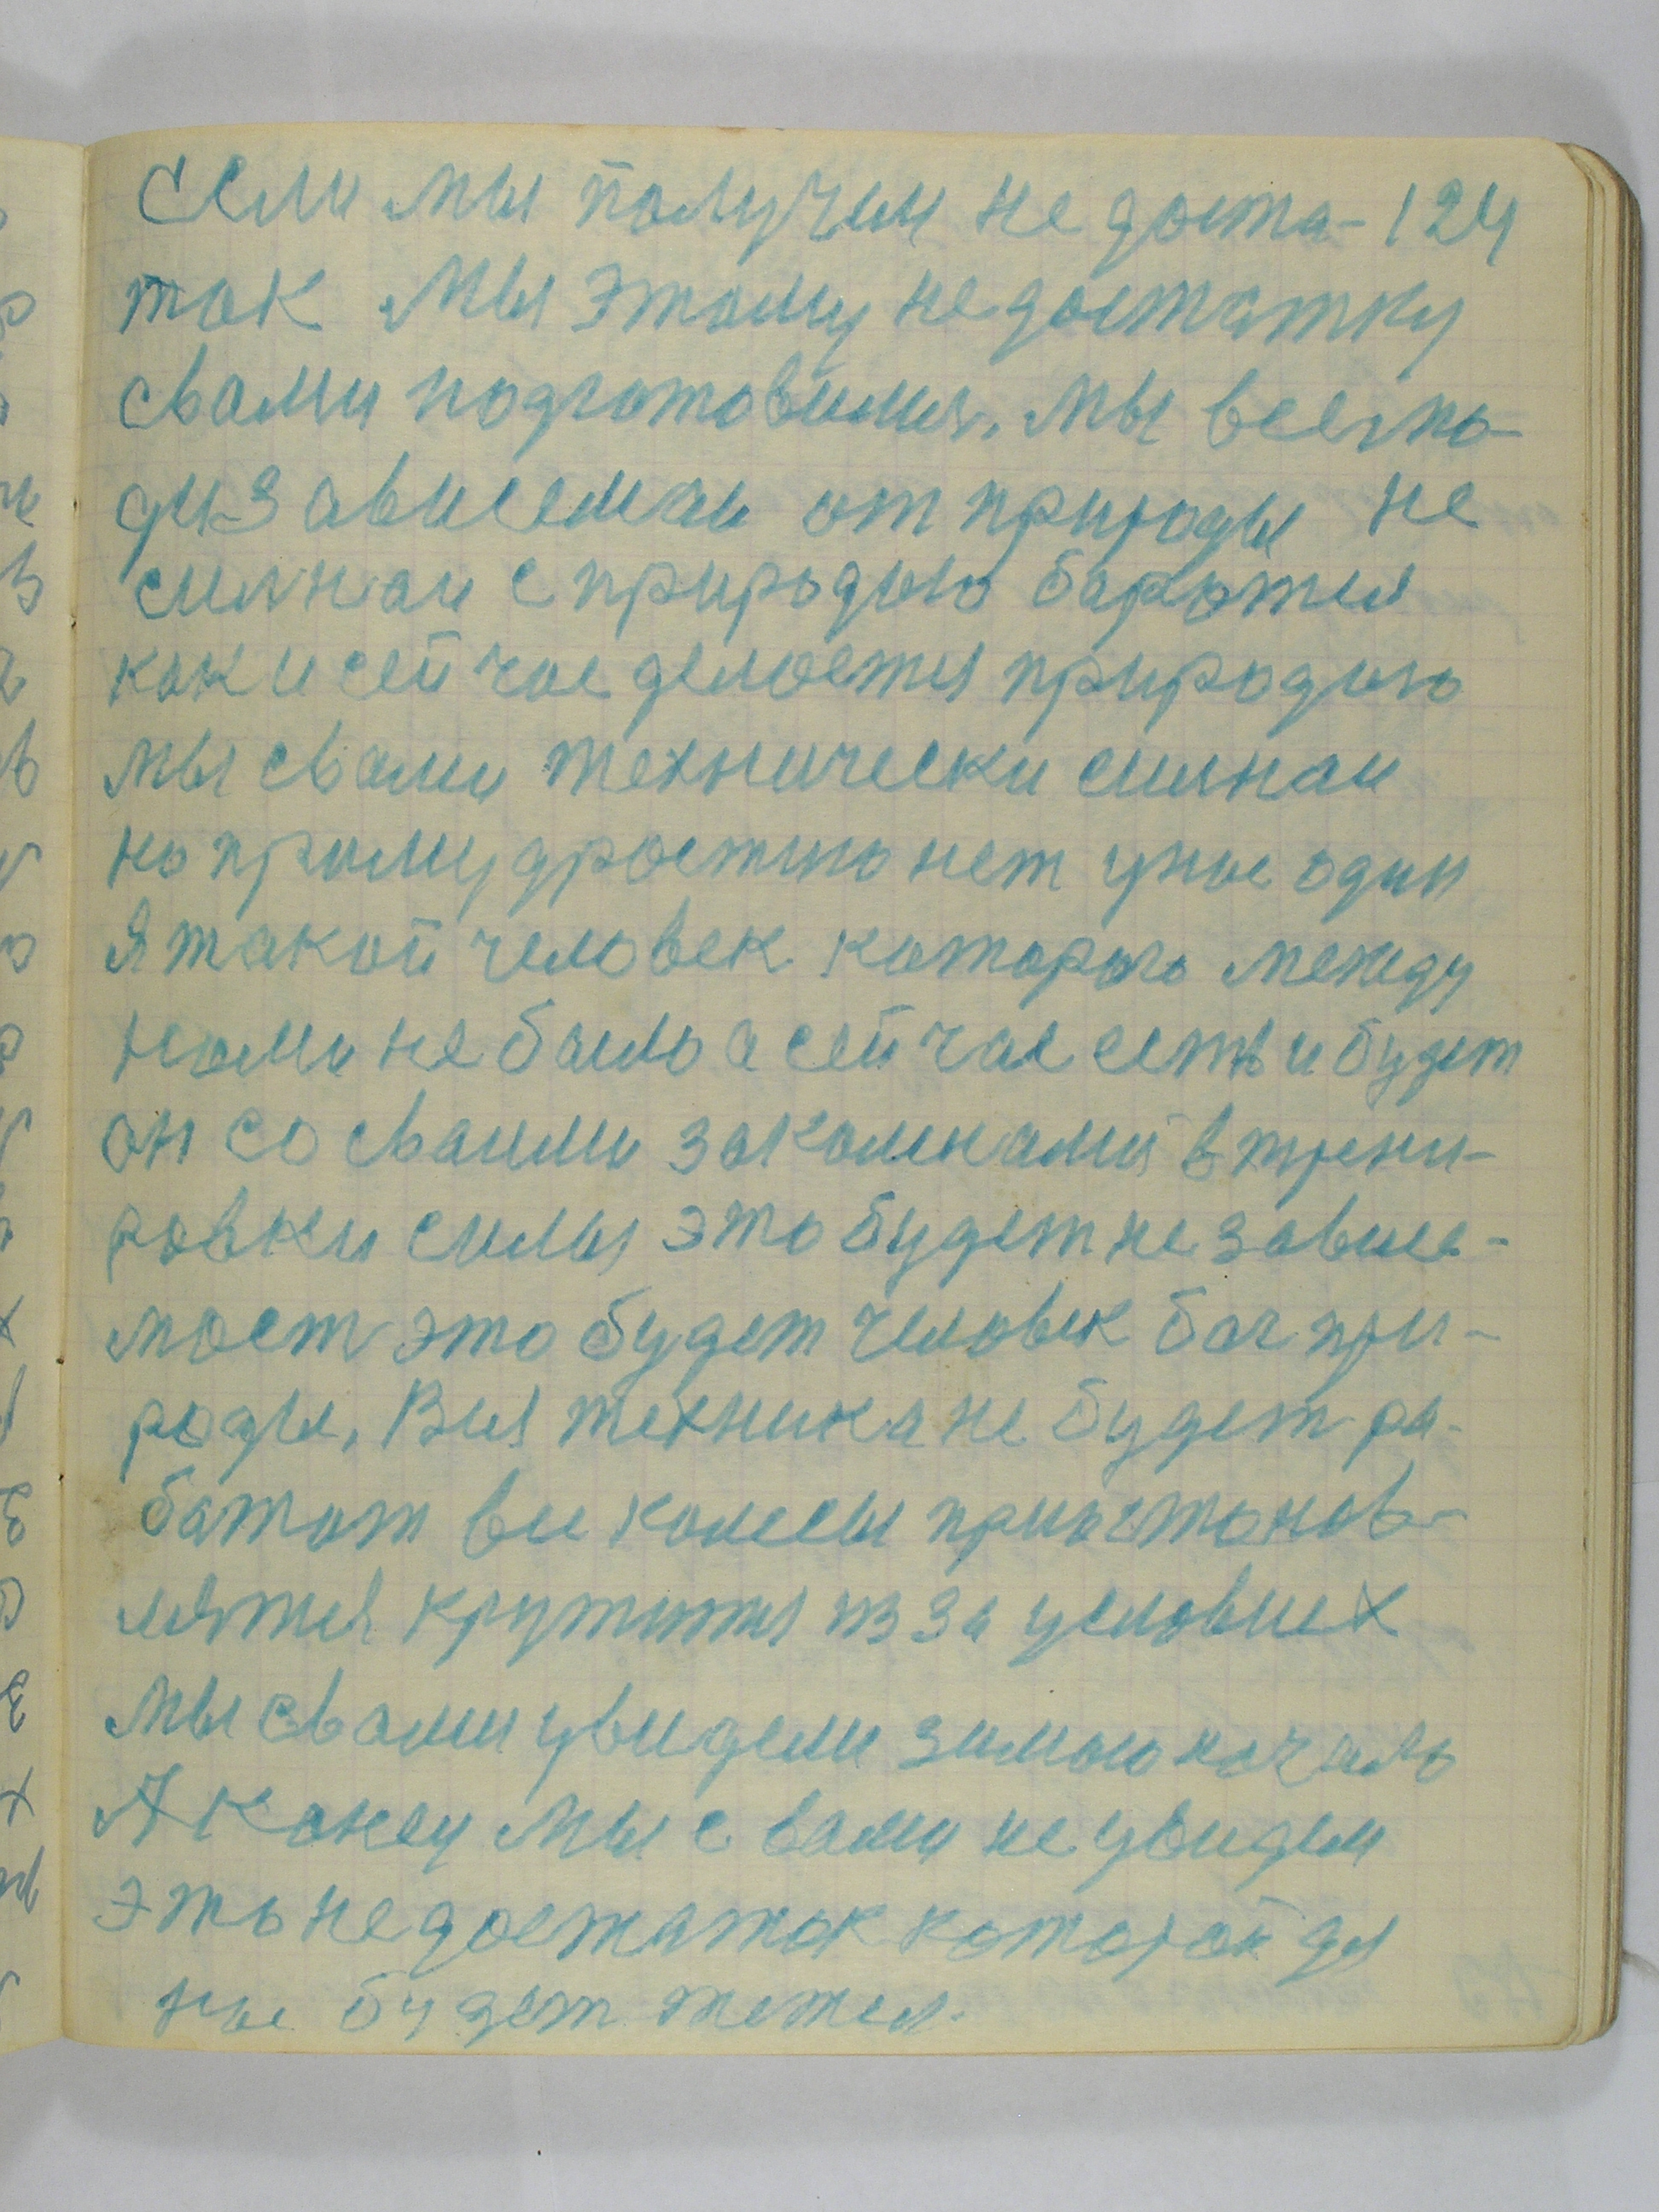 Если мы получим не доста- 124
ток мы этому недостатку
свами подготовимся, мы всělю-
ди зависемаи от природы не
силнаи с природою баротся
как и сейчас делается природою
мы свами технически силнаи
но прамудростию нет унас один
я такой человек которого между
нами не было а сейчас есть и будет
он со сваими закалками в трени-
ровки силы это будет не завися-
мост это будет человек бог при-
роды, Вся техника не будет ра-
ботат все колесы приостонов-
лятся крутится из за условиех
мы свами увидели зимою начало
А конец мы с вами не увидем
это недостаток которой дл
нас будет тежел.